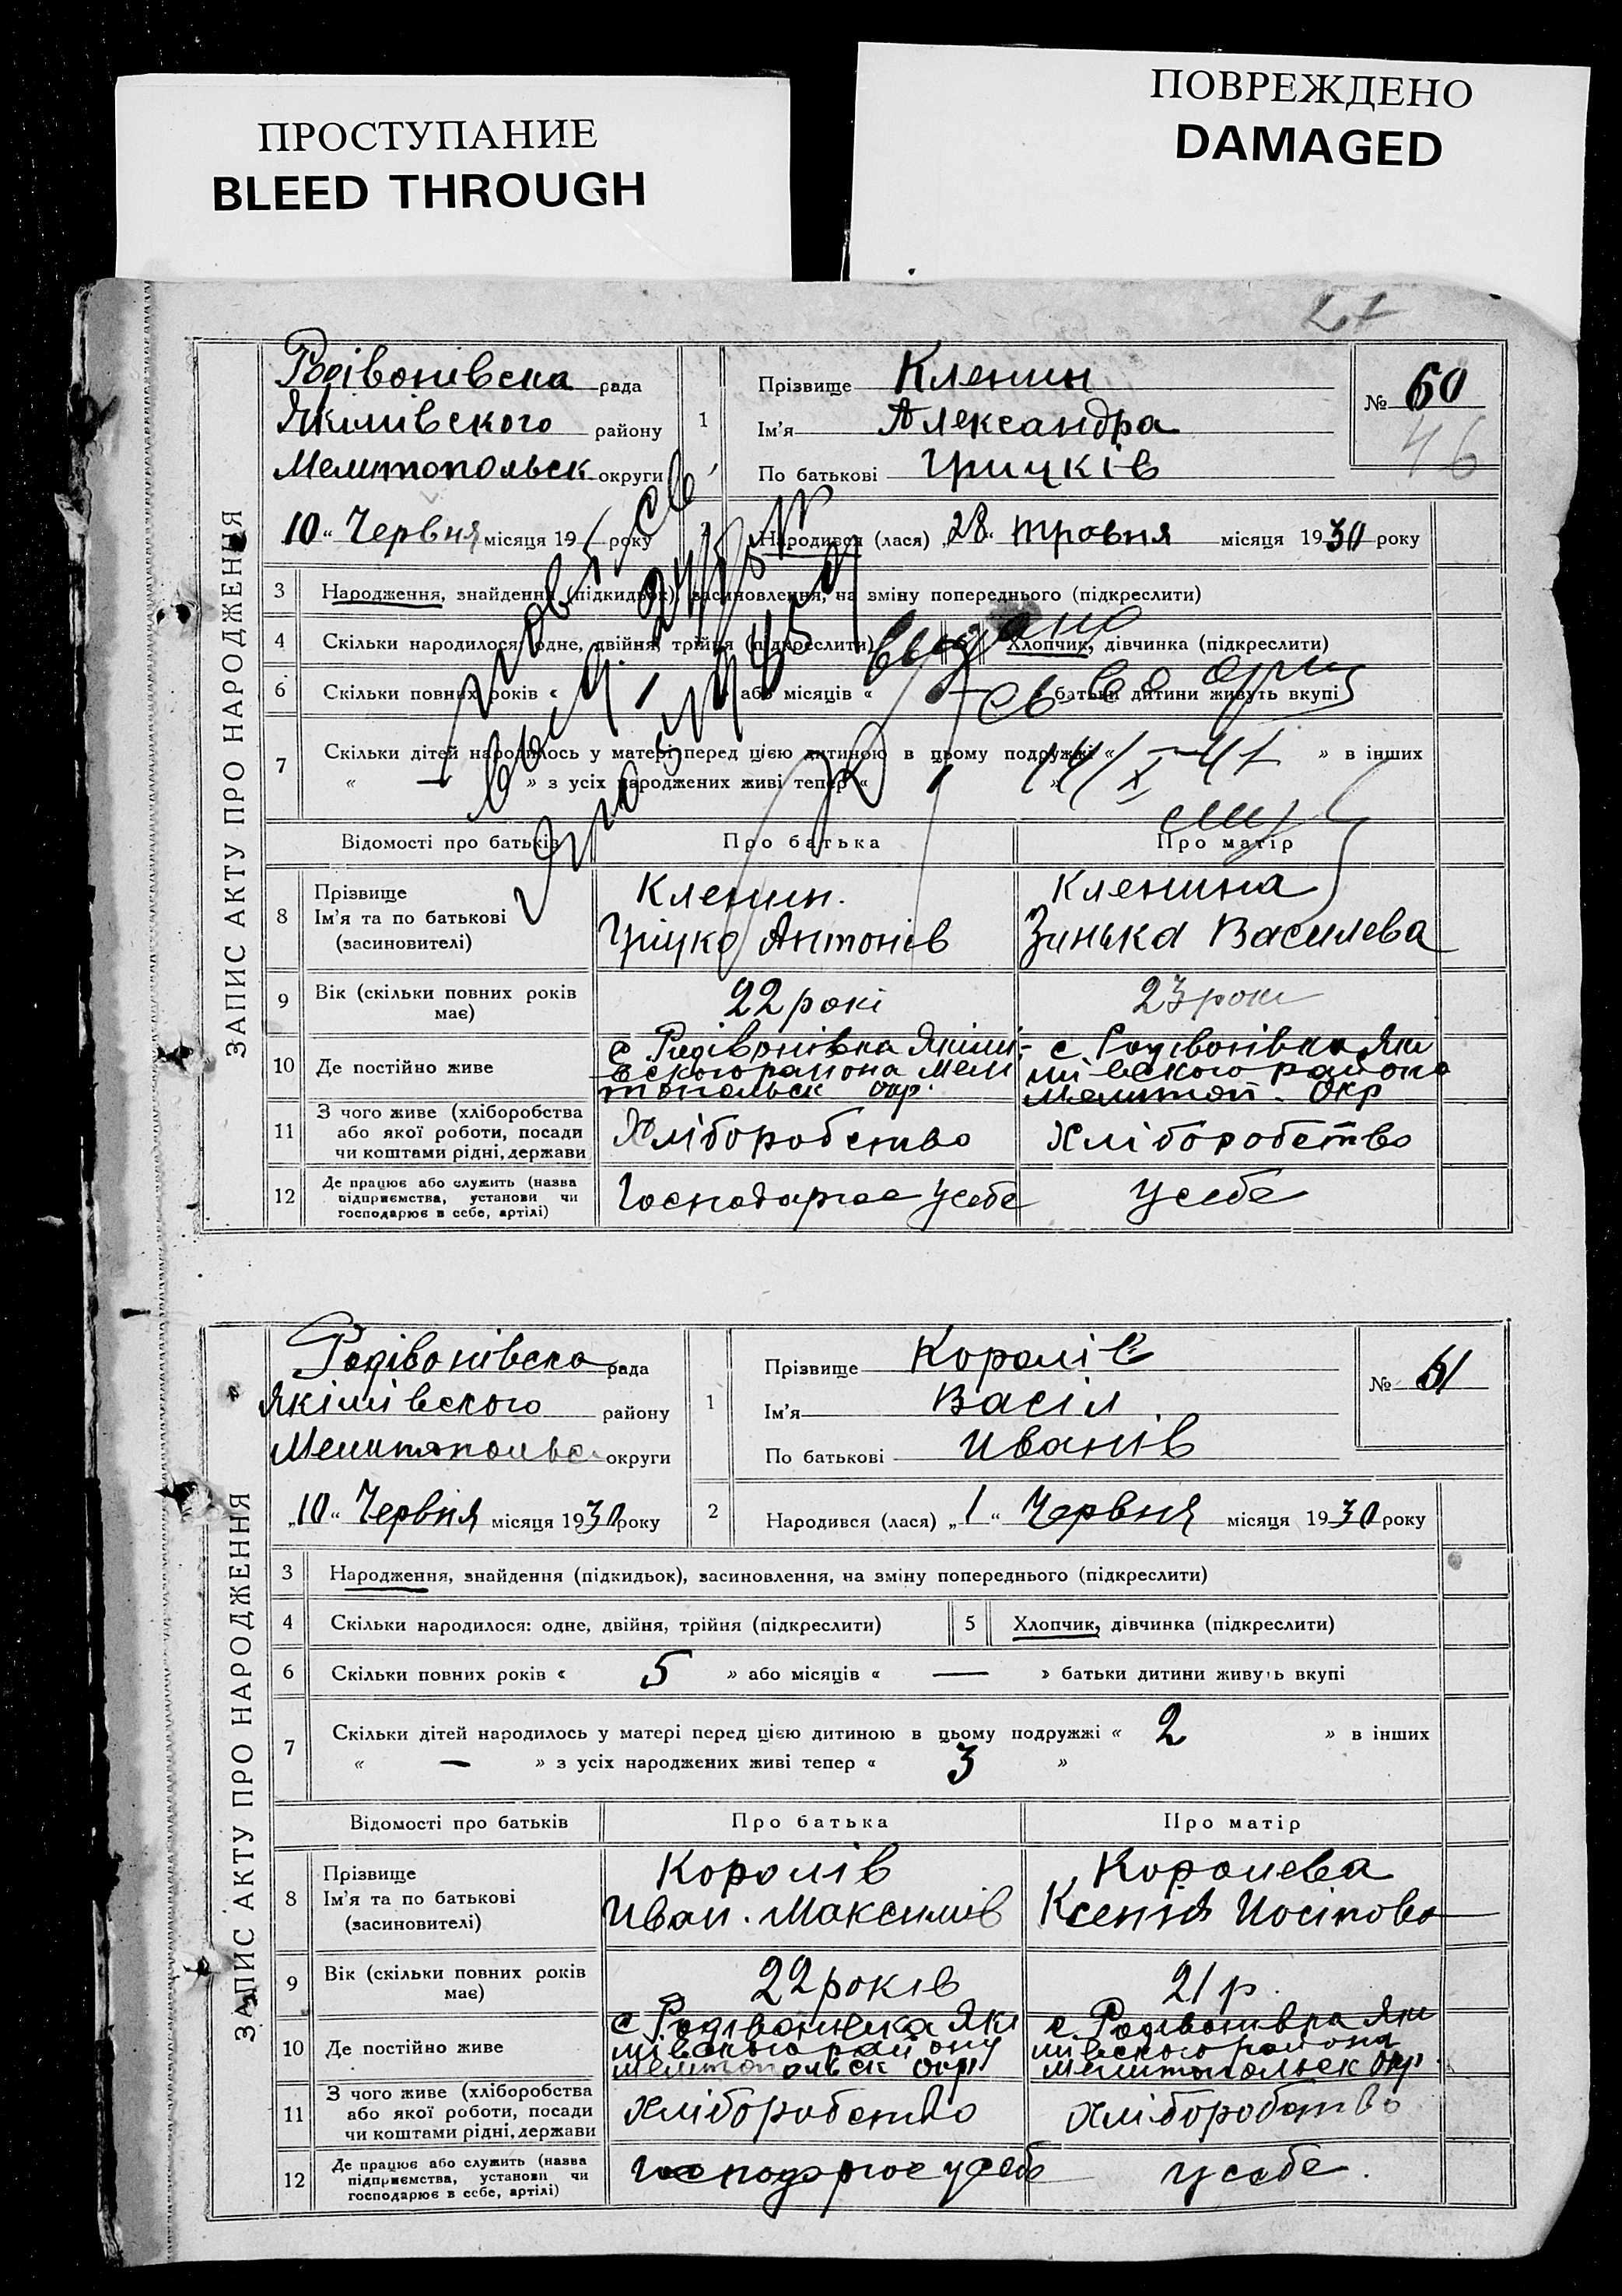 ПРОСТУПАНИЕ
BLEED THROUGH
ПОВРЕЖДЕНО
DAMAGED
ЗАПИС АКТУ ПРО НАРОДЖЕННЯ
Родівонівска рада
Якімівского району
Мелитопольск округи
1
Прізвище Кленин
Ім'я Александра
По батькові Грицків
№ 60
46
10 " Червня місяця 19 року
Народився (лася) „ 28 " травня місяця 19 30 року
3 Народження, знайдення (підкидьок), засиновлення, на зміну попереднього (підкреслити)
4 Скільки народилося: одне, двійня, трійня (підкреслити) Хлопчик, дівчинка (підкреслити)
6 Скільки повних років « 1 або місяців « — батьки дитини живуть вкупі
7 Скільки дітей народилось у матері перед цією дитиною в цьому подружжі « » в інших
« — » з усіх народжених живі тепер « 1 »
выдано
Відомості про батьків Про батька Про матір
8 Прізвище
Ім'я та по батькові
(засиновителі)
Кленин.
Грицко Антонів
Кленина
Зинька Василева
9 Вік (скільки повних років
має)
22 рокі
23 роки
10 Де постійно живе
с Родівонівка Якімі-
вского района Мелі
топольск окр.
с Родівонівка Яки
мівского района
Мелитоп. Окр
11 З чого живе (хліборобства
або якої роботи, посади
чи коштами рідні, держави
Хліборобство
Хліборобство
12 Де працює або служить (назва
підприємства, установи чи
господарює в себе, артілі)
Господарює усебе
усебе
ЗАПИС АКТУ ПРО НАРОДЖЕННЯ
Родівонівска рада
Якімівского району
Мелитопольс округи
1
Прізвище Королів
Ім'я Васіл
По батькові Иванів
№ 61
„ 10 " Червня місяця 19 30 року
2 Народився (лася) „ 1 " Червня місяця 19 30 року
3 Народження, знайдення (підкидьок), засиновлення, на зміну попереднього (підкреслити)
4 Скільки народилося: одне, двійня, трійня (підкреслити) 5 Хлопчик, дівчинка (підкреслити)
6 Скільки повних років « 5 » або місяців « — » батьки дитини живуть вкупі
7 Скільки дітей народилось у матері перед цією дитиною в цьому подружжі « 2 » в інших
« — » з усіх народжених живі тепер « 3 »
Відомості про батьків Про батька Про матір
8 Прізвище
Ім'я та по батькові
(засиновителі)
Королів
Иван. Максимів
Королева
Ксенія Иосіпова
9 Вік (скільки повних років
має)
22 років
21 р.
10 Де постійно живе
с Родівонівка Які
мівского району
мелитопольск окр
с. Родівонівка Яки
мівского района
мелитопольск окр.
11 З чого живе (хліборобства
або якої роботи, посади
чи коштами рідні, держави
Хліборобство
Хліборобство
12 Де працює або служить (назва
підприємства, установи чи
господарює в себе, артілі)
Господарює усебе
усебе.